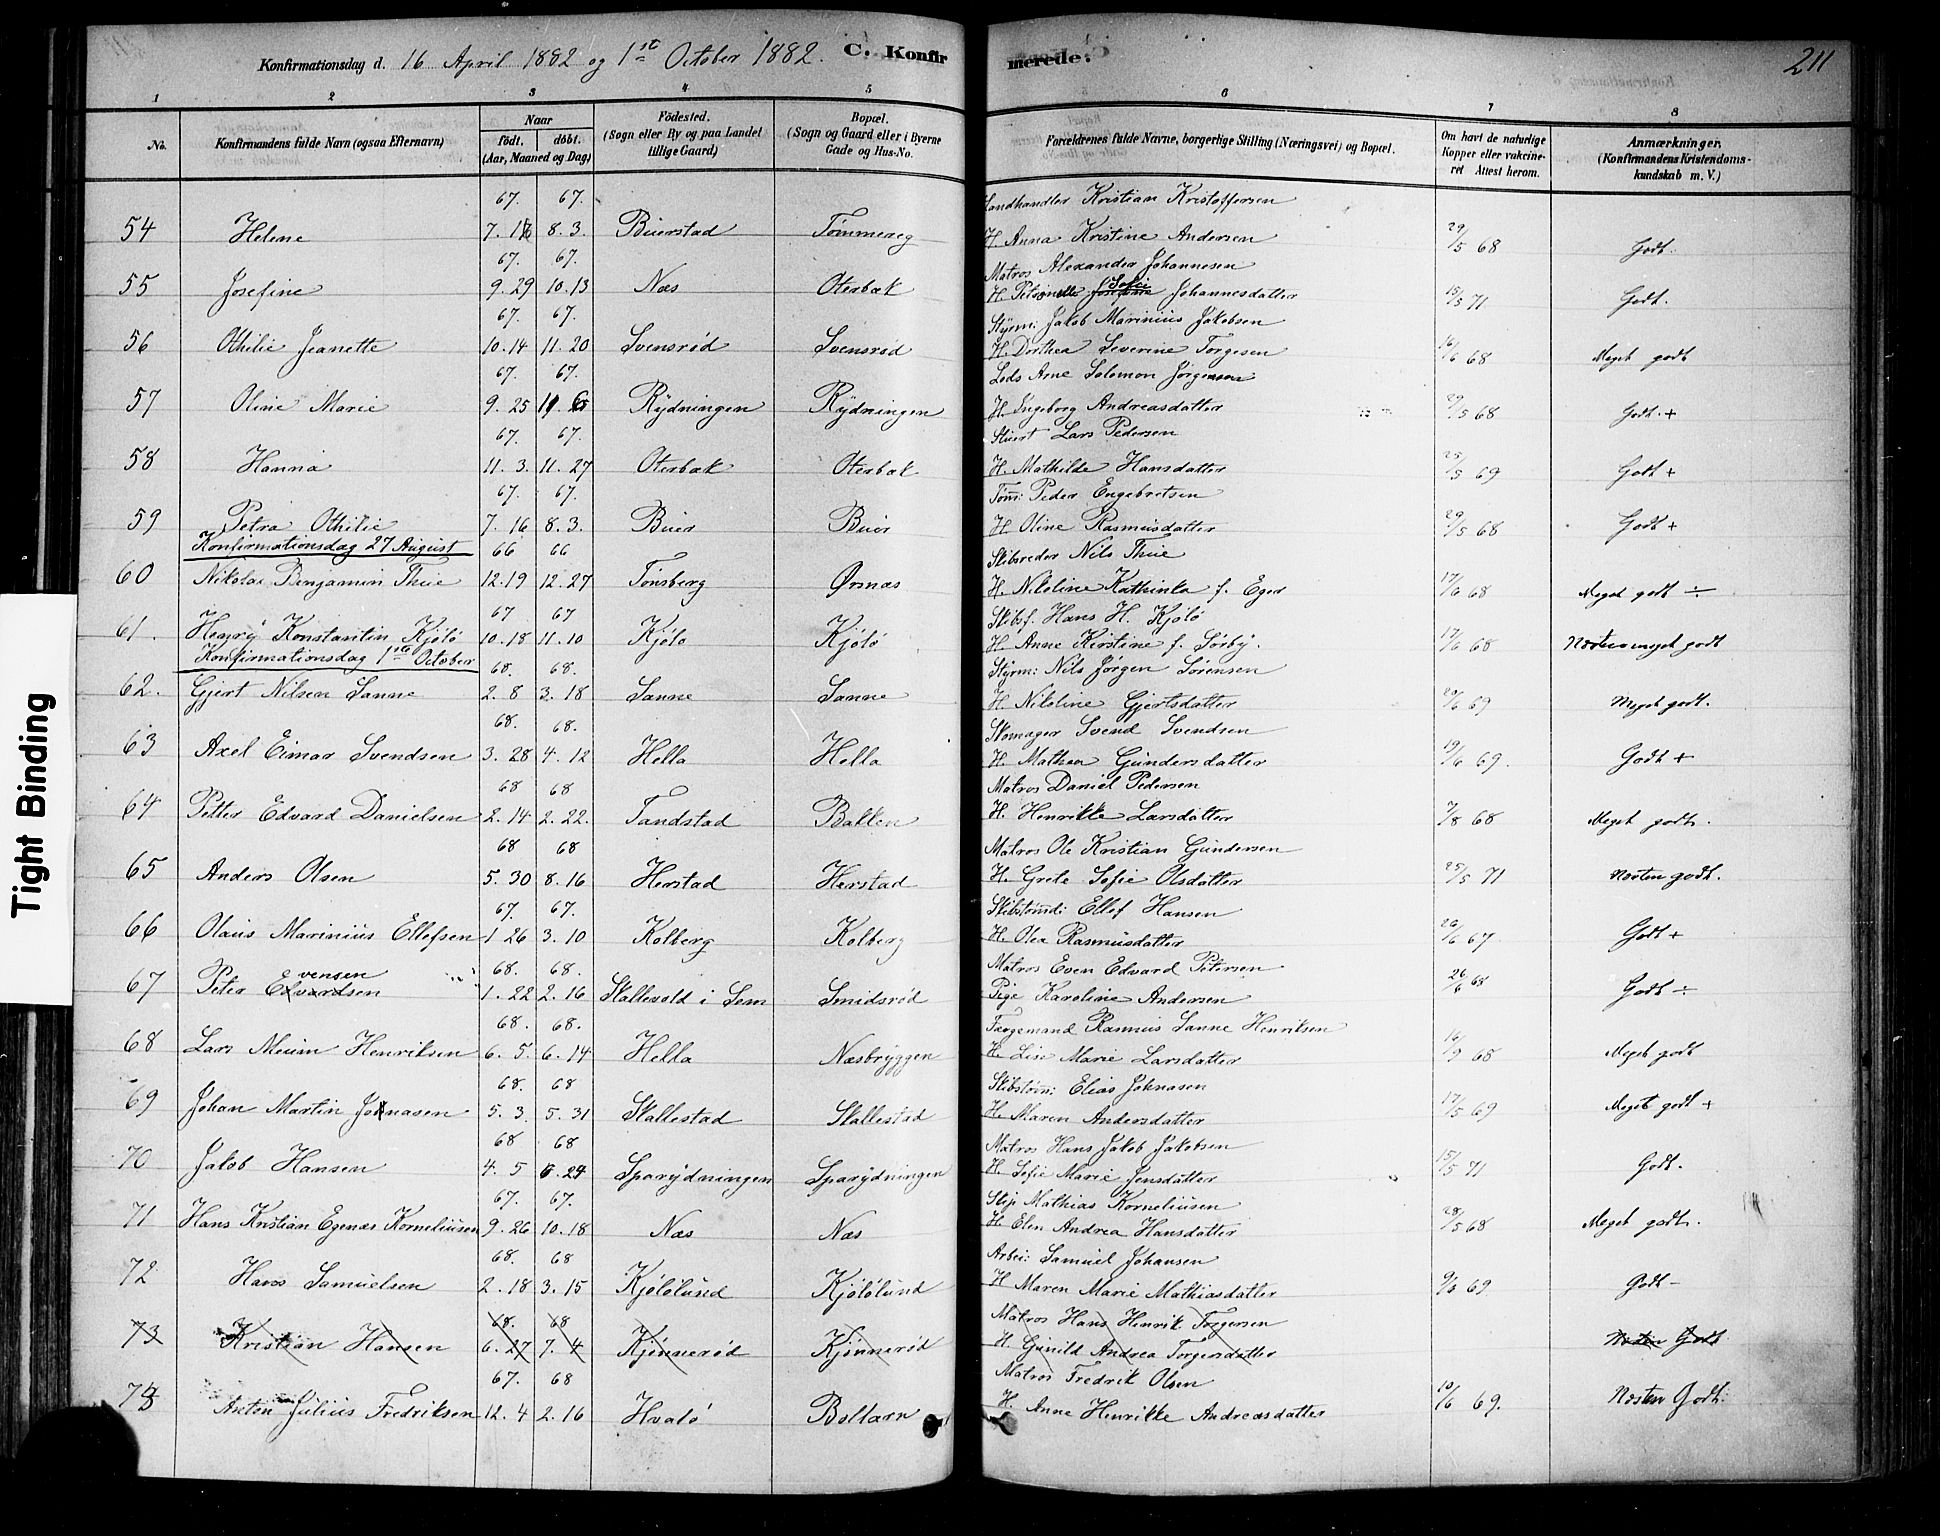 Konfirmationsdag d. 16 April 1882 og 1st October 1882. C. Konfirmerede. 211
1 2 3 4 5 6 7 8
No. Konfirmandens fulde Navn (ogsaa Efternavn) Naar født. døbt. (Aar, Maaned og Dag) Fødested. (Sogn eller By og paa Landet tillige Gaard) Bopæl. (Sogn og Gaard eller i Byerne Gade og Hus-No. Forældrenes fulde Navne, borgerlige Stilling (Næringsvei) og Bopæl. Om havt de naturlige Kopper eller vakcineret Attest herom. Anmærkninger. (Konfirmandens Kristendomskundskab m. V.)
67. 67. Landhandler Kristian Kristoffersen
54 Helene 7. 16 8. 3. Buerstad Tømmereg H. Anna Kristine Andersen 29/5 68 Godt.
67. 67. Matros Alexander Johannesen
55 Josefine 9. 29 10. 13 Næs Oterbæk H. Petronelle Sofie Johannesdatter 15/5 71 Godt.
67. 67. Styrm: Jakob Marinius Jakobsen
56 Othilie Jeanette 10. 14 11. 20 Svensrød Svensrød H. Dorthea Severine Torgesen 16/6 68 Meget godt
67. 67. Lods Arne Salomon Jørgensen
57 Oline Marie 9. 25 Rydningen Rydningen H. Ingeborg Andreasdatter 29/5 68 Godt. +
67. 67. Stuert Lars Pedersen
58 Hanna 11. 3. 11. 27 Oterbæk Oterbæk H. Mathilde Hansdatter 25/5 69 Godt +
67. 67. Tøm: Peder Engebretsen
59 Petra Othilie 7. 16 8. 3. Buer Buer H. Oline Rasmusdatter 29/5 68 Godt +
Konfirmationsdag 27 August 66 66 Skibsreder Nils Thue
60 Nikolai Benjamin Thue 12. 19 12. 27 Tønsberg Ørsnæs H. Nikoline Kathinka f. Eger 17/6 68 Meget godt ÷
67 67 Skibsf. Hans H. Kjølø
61. Henry Konstantin Kjølø 10. 18 11. 10 Kjølø Kjølø H. Anne Kirstine f. Sørby. 17/6 68 Næsten meget godt
Konfirmationsdag 1ste October 68. 68. Styrm: Nils Jørgen Sørensen
62. Gjert Nilsen Sanne 2. 8 3. 18 Sanne Sanne H. Nikoline Gjertsdatter 20/6 69 Meget godt.
68. 68. Skomager Svend Svendsen
63 Axel Eimar Svendsen 3. 28 4. 12 Hella Hella H. Mathea Gundersdatter 19/6 69. Godt +
68 68 Matros Daniel Pedersen
64 Petter Edvard Danielsen 2. 14 2. 22. Tandstad Bakken H. Henrikke Larsdatter 7/8 68 Meget godt.
68 68 Matros Ole Kristian Gundersen
65 Anders Olsen 5. 30 8. 16 Herstad Herstad H. Grete Sofie Olsdatter 25/5 71 Næsten godt.
67. 67. Skibstømd: Ellef Hansen
66 Olaus Marinius Ellefsen 1 26 3. 10 Kolberg Kolberg H. Olea Rasmusdatter 26/6 67. Godt +
68. 68. Matros Even Edvard Petersen
67 Peter Evensen 1. 22 2. 16 Skallevold i Sem Smidsrød Pige Karoline Andersen 26/6 68 Godt ÷
68. 68. Færgemand Rasmus Sanne Henriksen
68 Lars Meum Henriksen 6. 5. 6. 14 Hella Næsbryggen H. Lise Marie Larsdatter 16/9 68 Meget godt
68. 68 Skibstøm: Elias Johnasen
69 Johan Martin Jonasen 5. 3. 5. 31 Skallestad Skallestad H. Maren Andersdatter 17/5 69 Meget godt +
68 68 Matros Hans Jakob Jakobsen
70 Jakob Hansen 4. 5 5. 24 Sparydningen Sparydningen H. Sofie Marie Jensdatter 15/5 71 Godt.
67. 67. Skp Mathias Korneliusen
71 Hans Kristian Egenæs Korneliusen 9. 26 10. 18 Næs Næs H Elen Andrea Hansdatter 28/5 68 Meget godt.
68. 68 Arbei: Samuel Johansen
72 Hans Samuelsen 2. 18 3. 15 Kjølølund Kjølølund H Maren Marie Mathiasdatter 9/6 69. Godt -
68. 68 Matros Hans Henrik Torgersen
73 Kristian Hansen 6. 27 7. 4 Kjønnerød Kjønnerød H. Gunild Andrea Torgersdatter Næsten Godt
67. 68 Matros Fredrik Olsen
73 Anton Julius Fredriksen 12. 4 2. 16 Hvalø Bollærn H. Anne Henrikke Andreasdatter 10/6 69. Næsten Godt.
Tight Binding